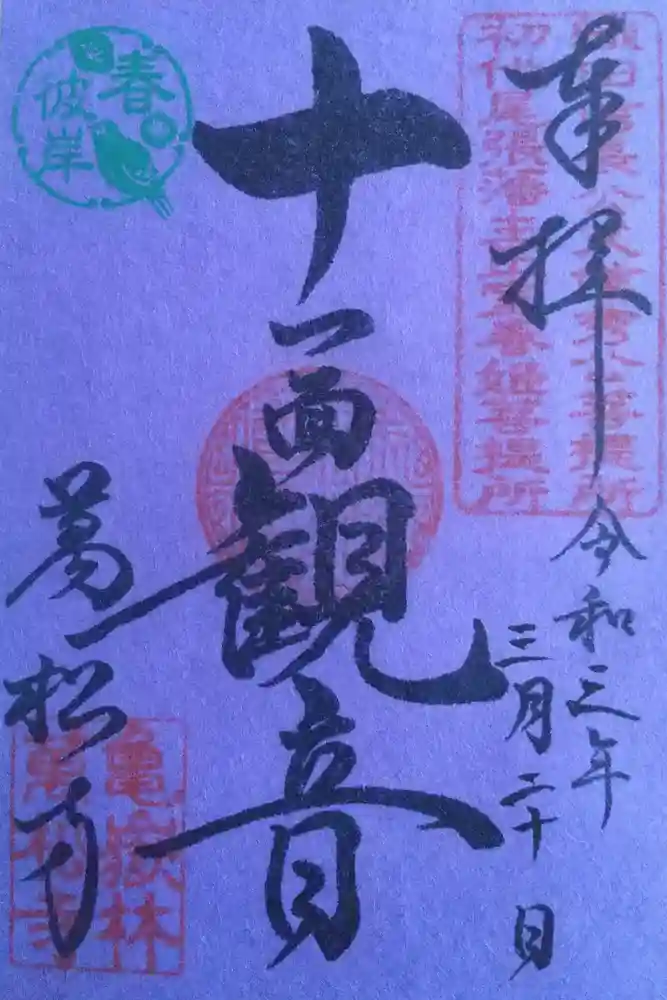 奉拝
令和三年
三月二十日
初代尾張藩主正室春姫菩提所
菩提所
十一面観音
春
彼岸
萬松寺
龜嶽林
萬松寺